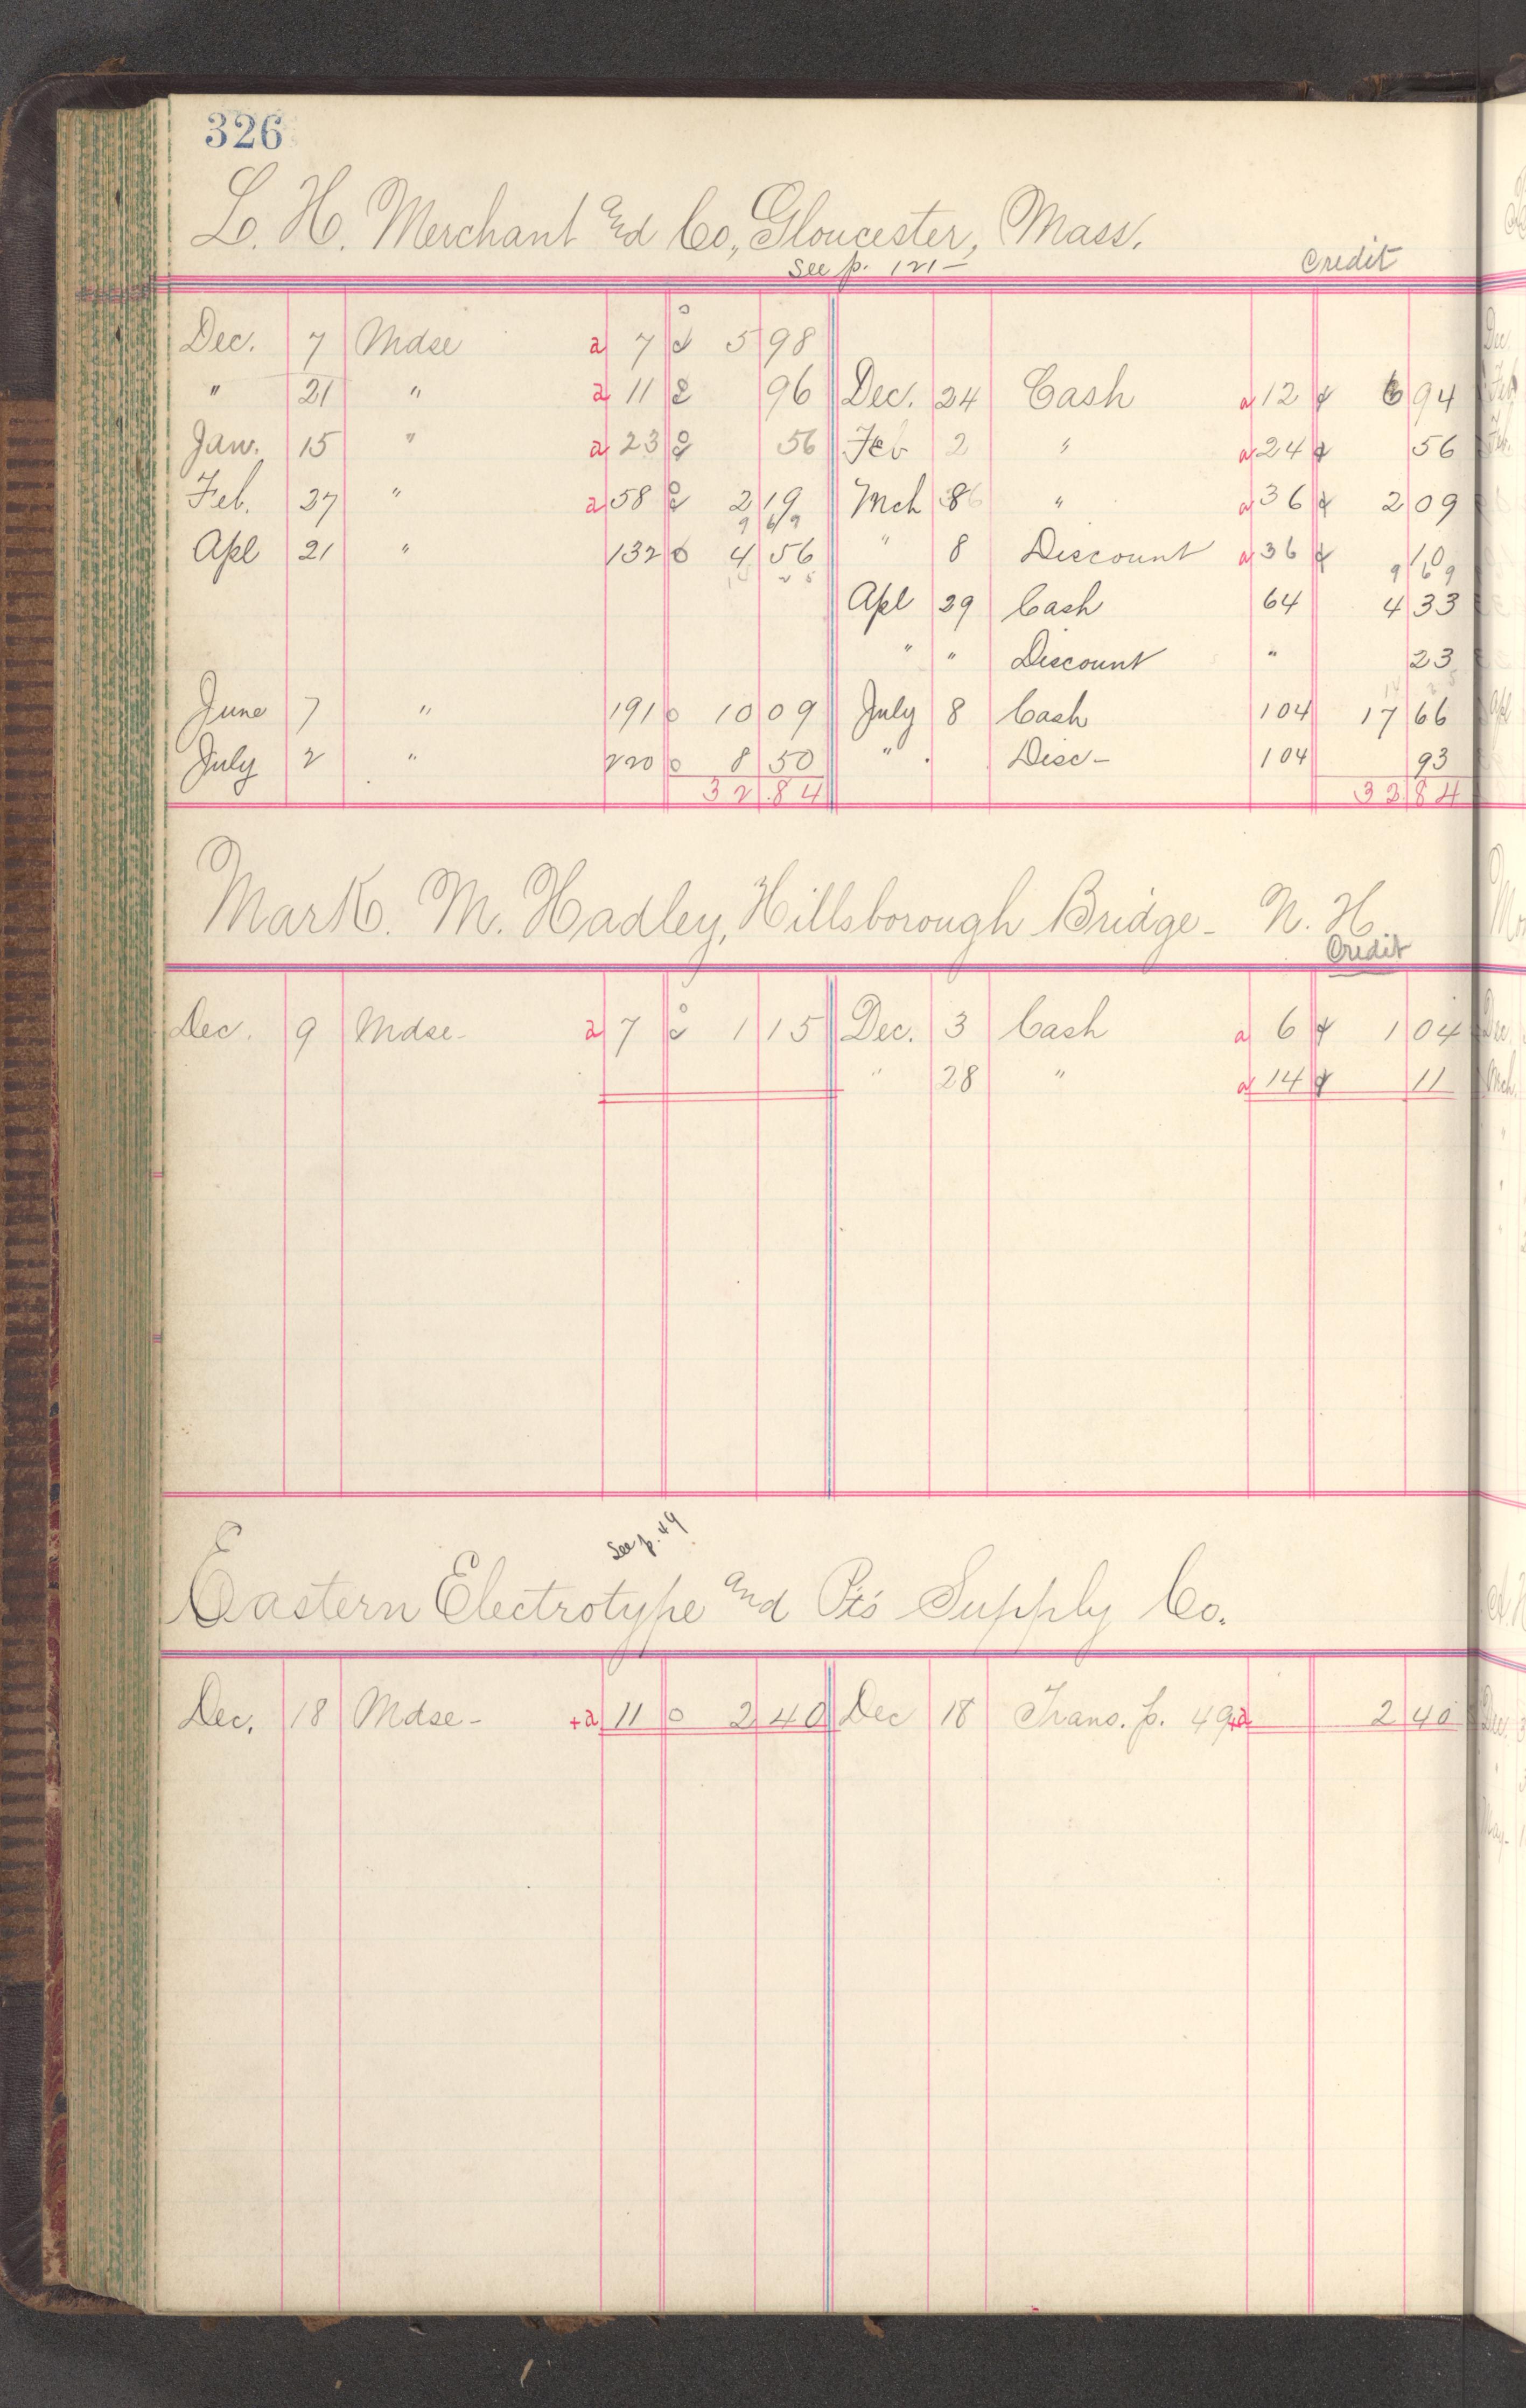 326
L. H. Merchant and Co., Gloucester, Mass.
See p. 121 — Credit
Dec. 7 Mdse a 7 5 98
" 21 " a 11 96 Dec. 24 Cash a 12 6 94
Jan. 15 " a 23 56 Feb 2 " a 24 56
Feb. 27 " a 58 2 19 Mch 8 " a 36 2 09
9 69
Apl 21 " 132 4 56 " 8 Discount a 36 10
9 69
Apl 29 Cash 64 4 33
" " Discount " 23
June 7 " 191 10 09 July 8 Cash 104 17 66
July 2 " 220 8 50 " Disc- 104 93
32.84 32.84
Mark. M. Hadley, Hillsborough Bridge - N. H
Credit
Dec. 9 Mdse- a 7 1 15 Dec. 3 Cash a 6 1 04
" 28 " a 14 11
See p. 49
Eastern Electrotype and Pt's Supply Co.
Dec. 18 Mdse- +a 11 2 40 Dec 18 Trans. p. 49 +a 2 40